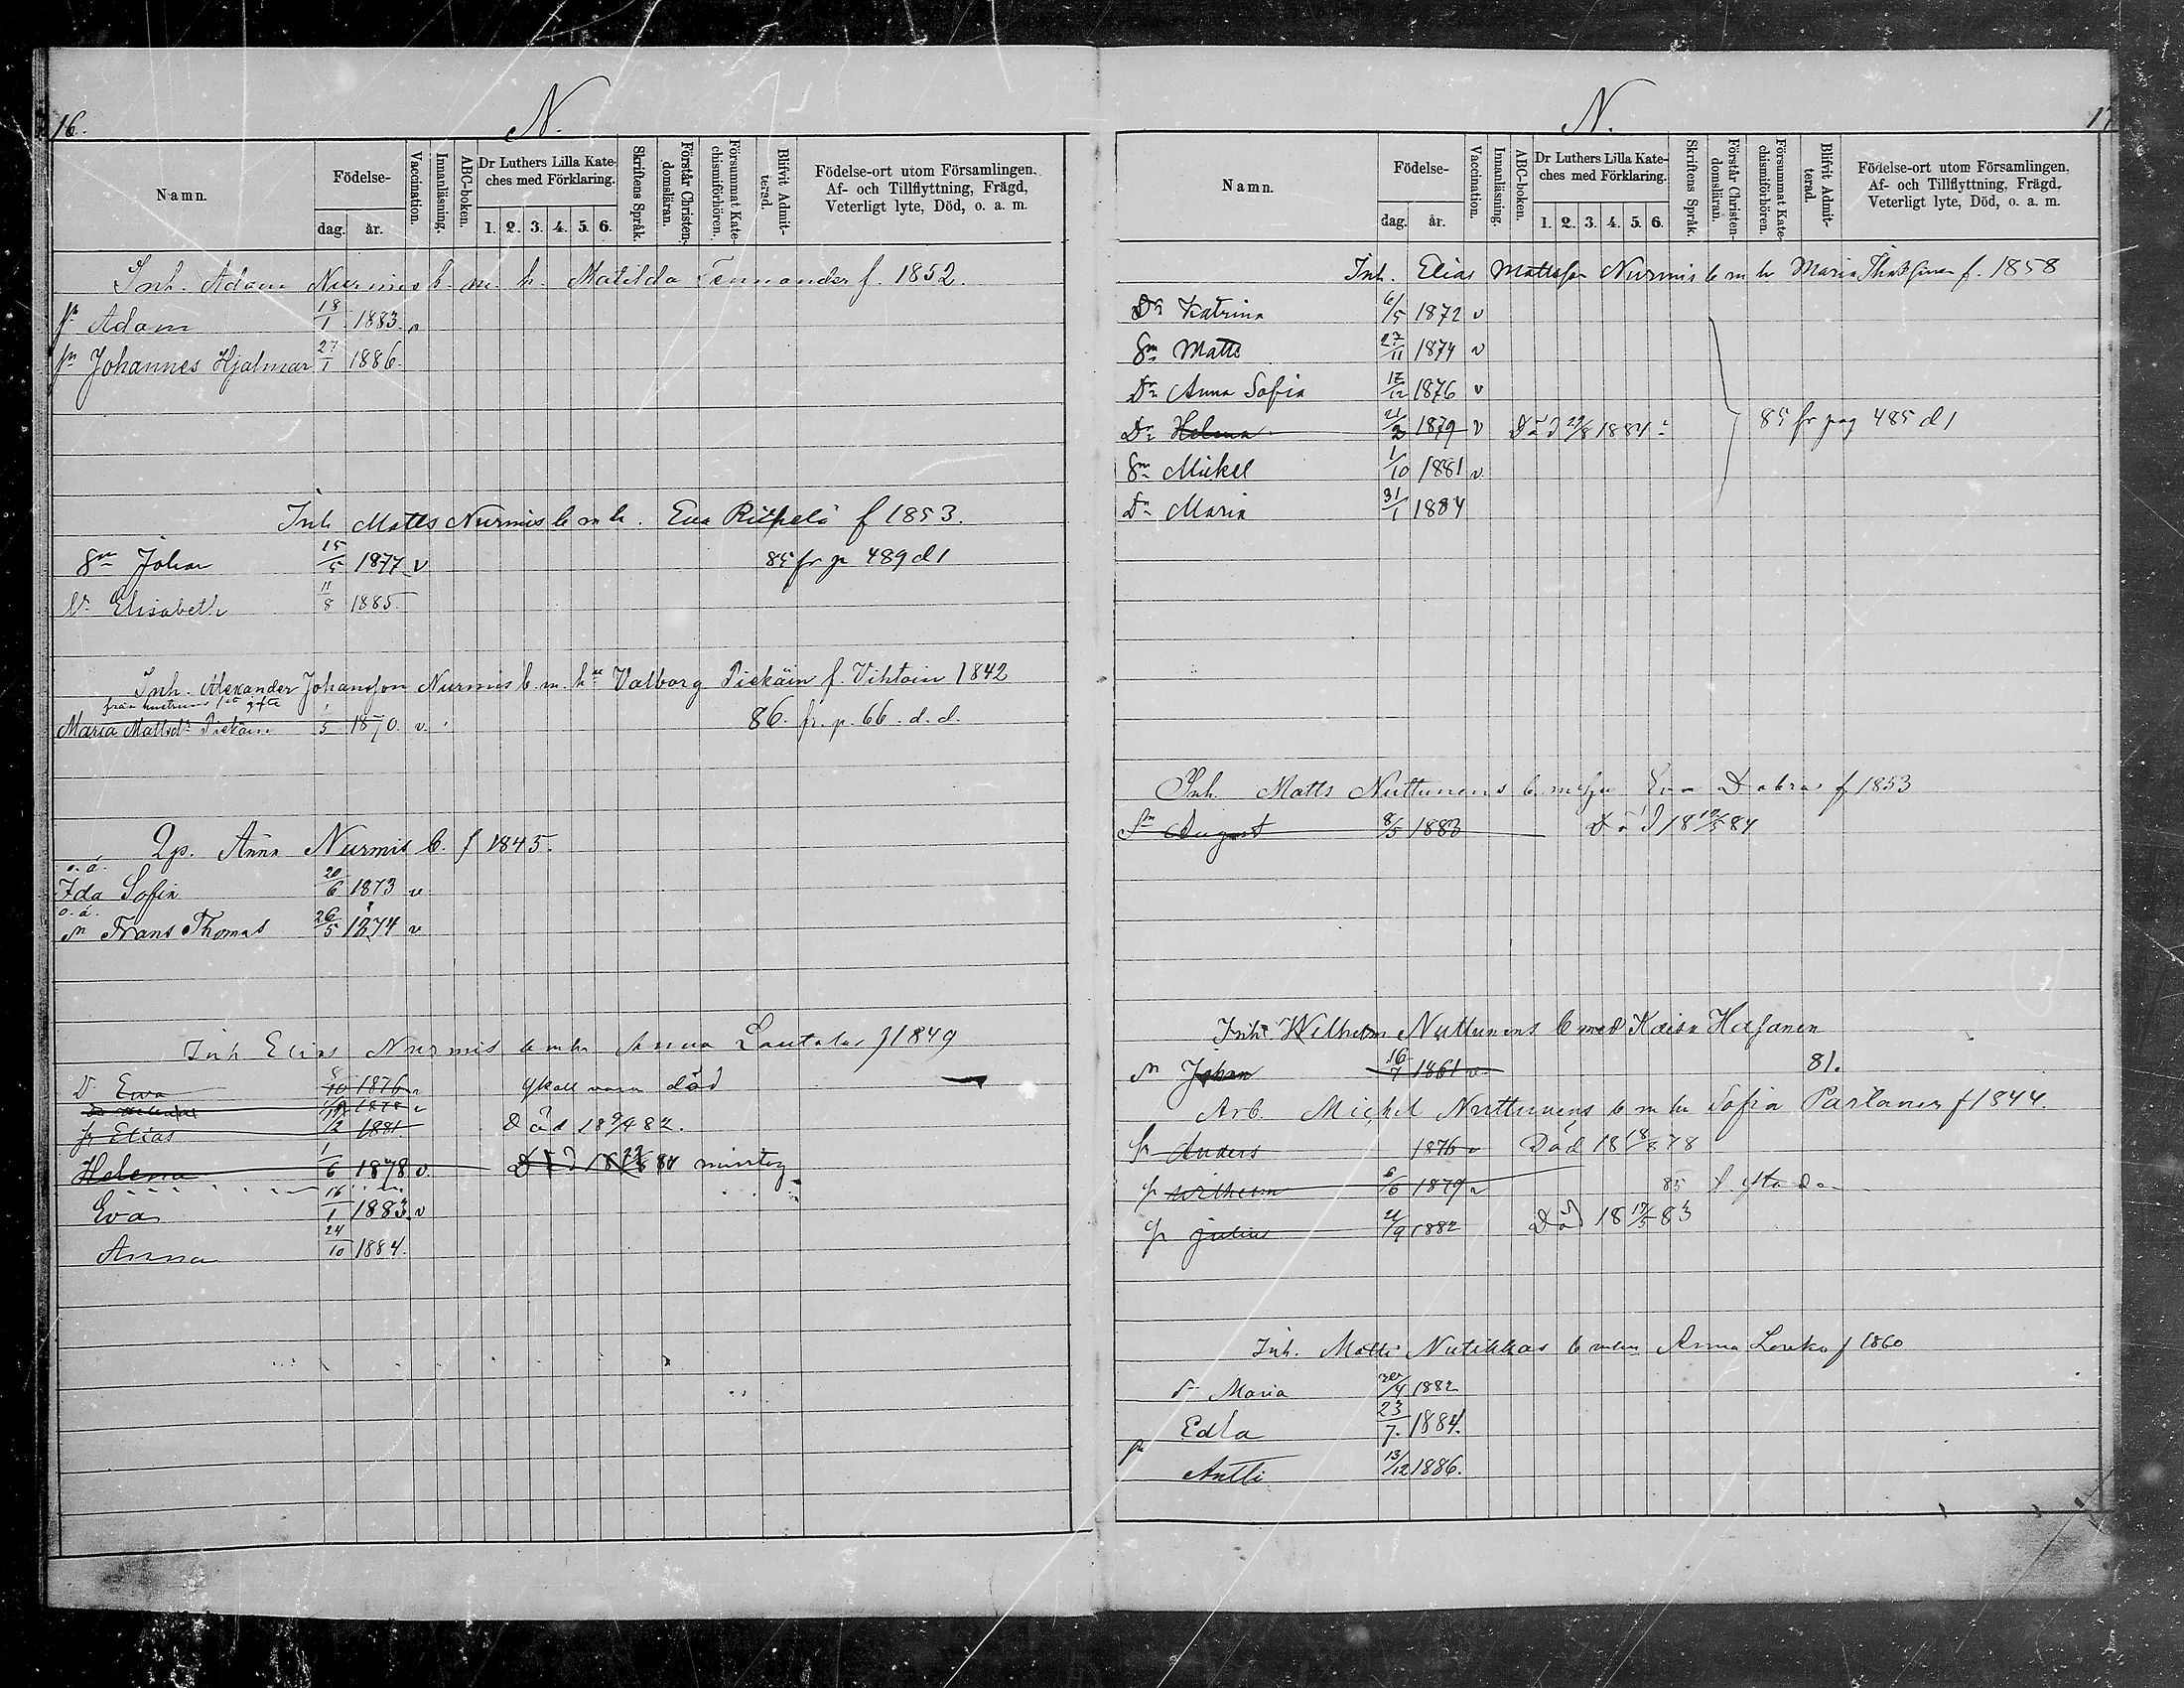 16.
N.
Namn.
Födelse-
dag. år.
Vaccination.
Innanläsning.
ABC-boken.
Dr Luthers Lilla Kate-
ches med Förklaring.
1. 2. 3. 4. 5. 6.
Skriftens Språk.
Förstår Christen-
domsläran.
Försummat Kate-
chismiförhören.
Blifvit Admit-
terad.
Födelse-ort utom Församlingen.
Af- och Tillflyttning, Frägd,
Veterligt lyte, Död, o. a. m.
Inh. Adam Nurmis b. m. h. Matilda Fennander f. 1852.
Sn Adam 18/1 1883. v
Sn Johannes Hjalmar 27/1 1886.
Inh Matts Nurmis b m h. Eva f 1853.
Sn Johan 15/5 1877 v 85 fr p 489 d 1
Dr Elisabeth 11/8 1885.
Inh. Alexander Johansson Nurmis b. m. h Valborg Piekäin f. Vihtoin 1842
från hustruns 1sta gifte
Maria Mattsdr Piekäin 5 1870. v. 86. fr. p. 66. d. d.
Qp. Anna Nurmis b. f 1845.
o. ä.
Ida Sofia 20/6 1873 v
o. ä.
Sn Frans Thomas 26/5 1874 v
Inh Elias Nurmis b m hu Anna Lautalas f 1849
D Ewa 1876 v skall vara död
1878 v
Sn Elias /2 1881. Död 18 9/4 82.
Helena 1/6 1878 v. Död misstag
Eva 16/1 1883 v
Anna 24/10 1884.
17
N.
Namn.
Födelse-
dag. år.
Vaccination.
Innanläsning.
ABC-boken.
Dr Luthers Lilla Kate-
ches med Förklaring.
1. 2. 3. 4. 5. 6.
Skriftens Språk.
Förstår Christen-
domsläran.
Försummat Kate-
chismiförhören.
Blifvit Admit-
terad.
Födelse-ort utom Församlingen,
Af- och Tillflyttning, Frägd,
Veterligt lyte, Död, o. a. m.
Inh. Elias Mattsson Nurmis b m h Maria f. 1858
Dr Katrina 6/5 1872 v
Sn Matts 27/11 1874 v
Dr Anna Sofia 17/12 1876 v
Dr Helena 21/2 1879 v Död 29/8 1884
85 fr pag 485 d 1
Sn Mickel 1/10 1881 v
Dr Maria 31/1 1884
Inh. Matts Nuttunens b. Eva Dabras f 1853
Sn August 8/5 1883 Död 18 84
Inh Wilhelm Nuttunens b med Kaisa Hassanen
Sn Johan 16/7 1861 v. 81.
Arb. Michel Nuttunens b m hu Sofia Partanen f 1844.
Sn Anders 1876 v Död 18 18/8 78
Sn Wilhelm 6/6 1879 v 85
Sn Julius 21/9 1882 Död 18 17/5 83
Inh. Matts Nutikkas b m hu Anna f 1860
D Maria 30/4 1882
Edla 23/7. 1884.
Sn Antti 13/12 1886.